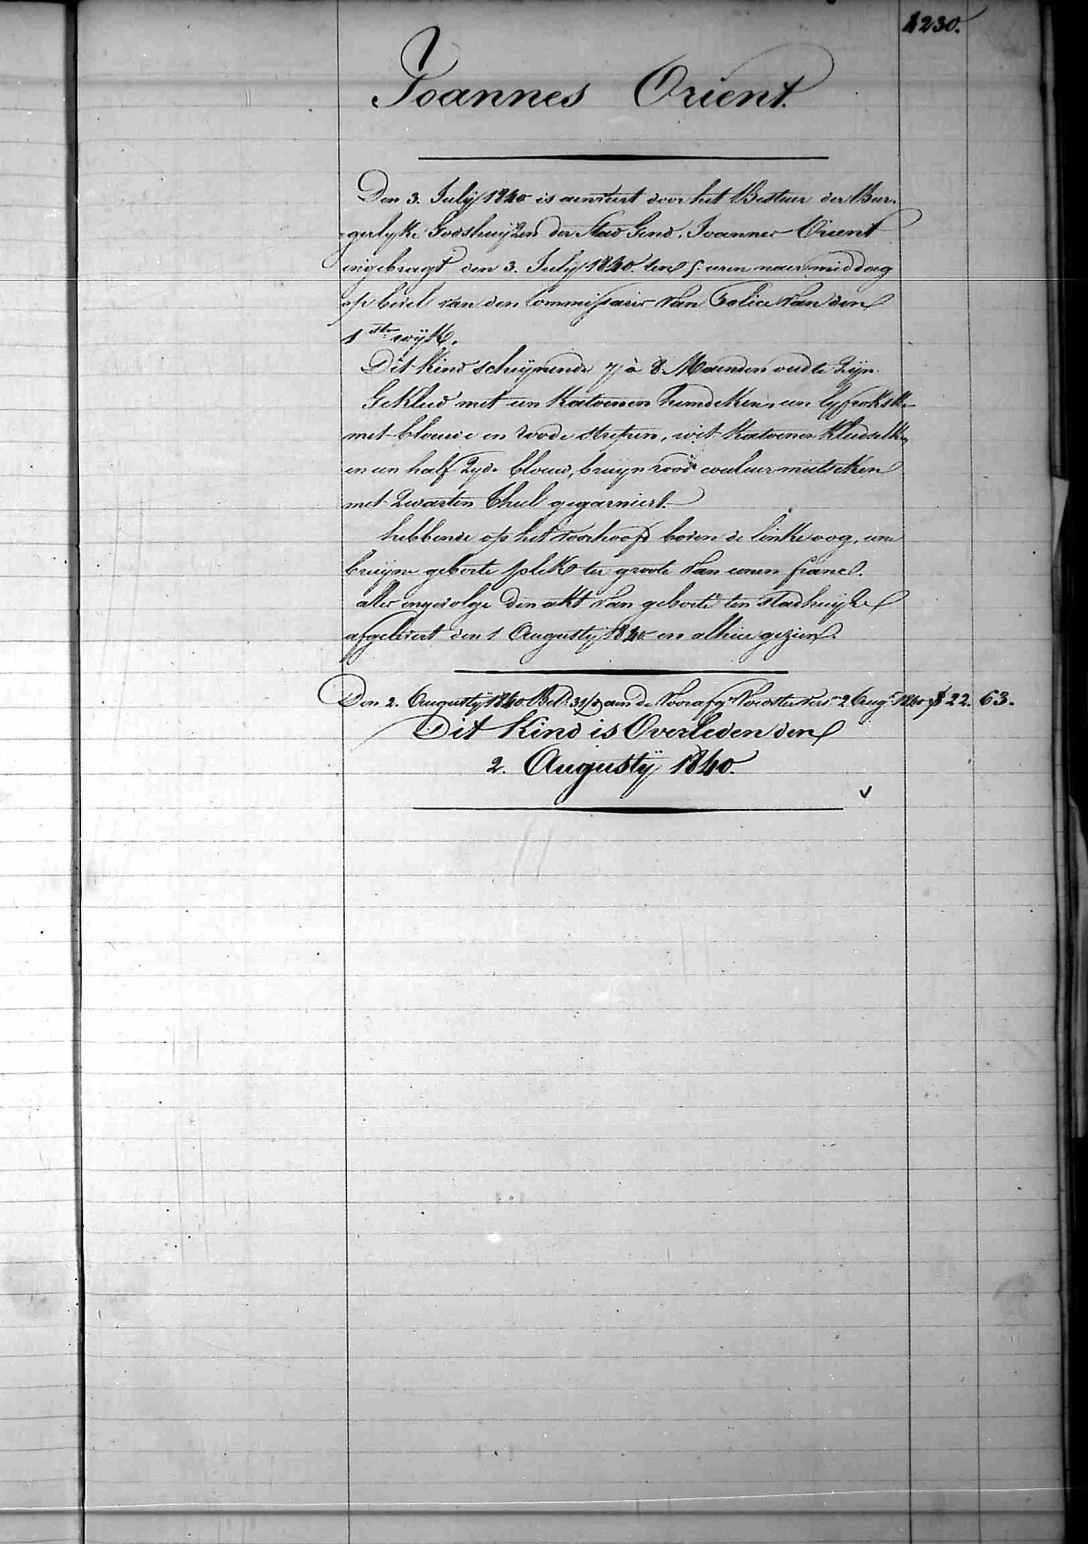 1230.
Joannes Orient.
Den 3. Julÿ 1840 is aenveirt door het Bestuer der Bur-
gerlyke Godshuijzen der Stad Gend. Joannes Orient
ingebragt den 3. Julÿ 1840. ten 5. uren naermiddag
op bevel van den Commissaris van Police van den
1ste wÿk.
Dit Kind schijnende 7 à 8. Maenden oud te Zijn.
Gekleed met een Katoenen hemdeken, een lyfrokske
met blauwe en roode strepen, wit Katoenen Kleedselke,
en een half Zyde blauw, bruyn rood couleur mutseken
met Zwarten thul gegarniert.
hebbende op het voorhoofd boven de linke oog, een
bruyne geborte plek ter groote van eenen franc.
alles ingevolge den akt van geborte ten stadhuyze
afgelevert den 1 Augustÿ 1840 en alhier gezien.
Den 2. Augustÿ 1840. Bet. 31/ aen de Voorafg. Voedster vers. 2 Aug. 1840 f 22. 63.
Dit Kind is Overleden den
2. Augustÿ 1840.
v